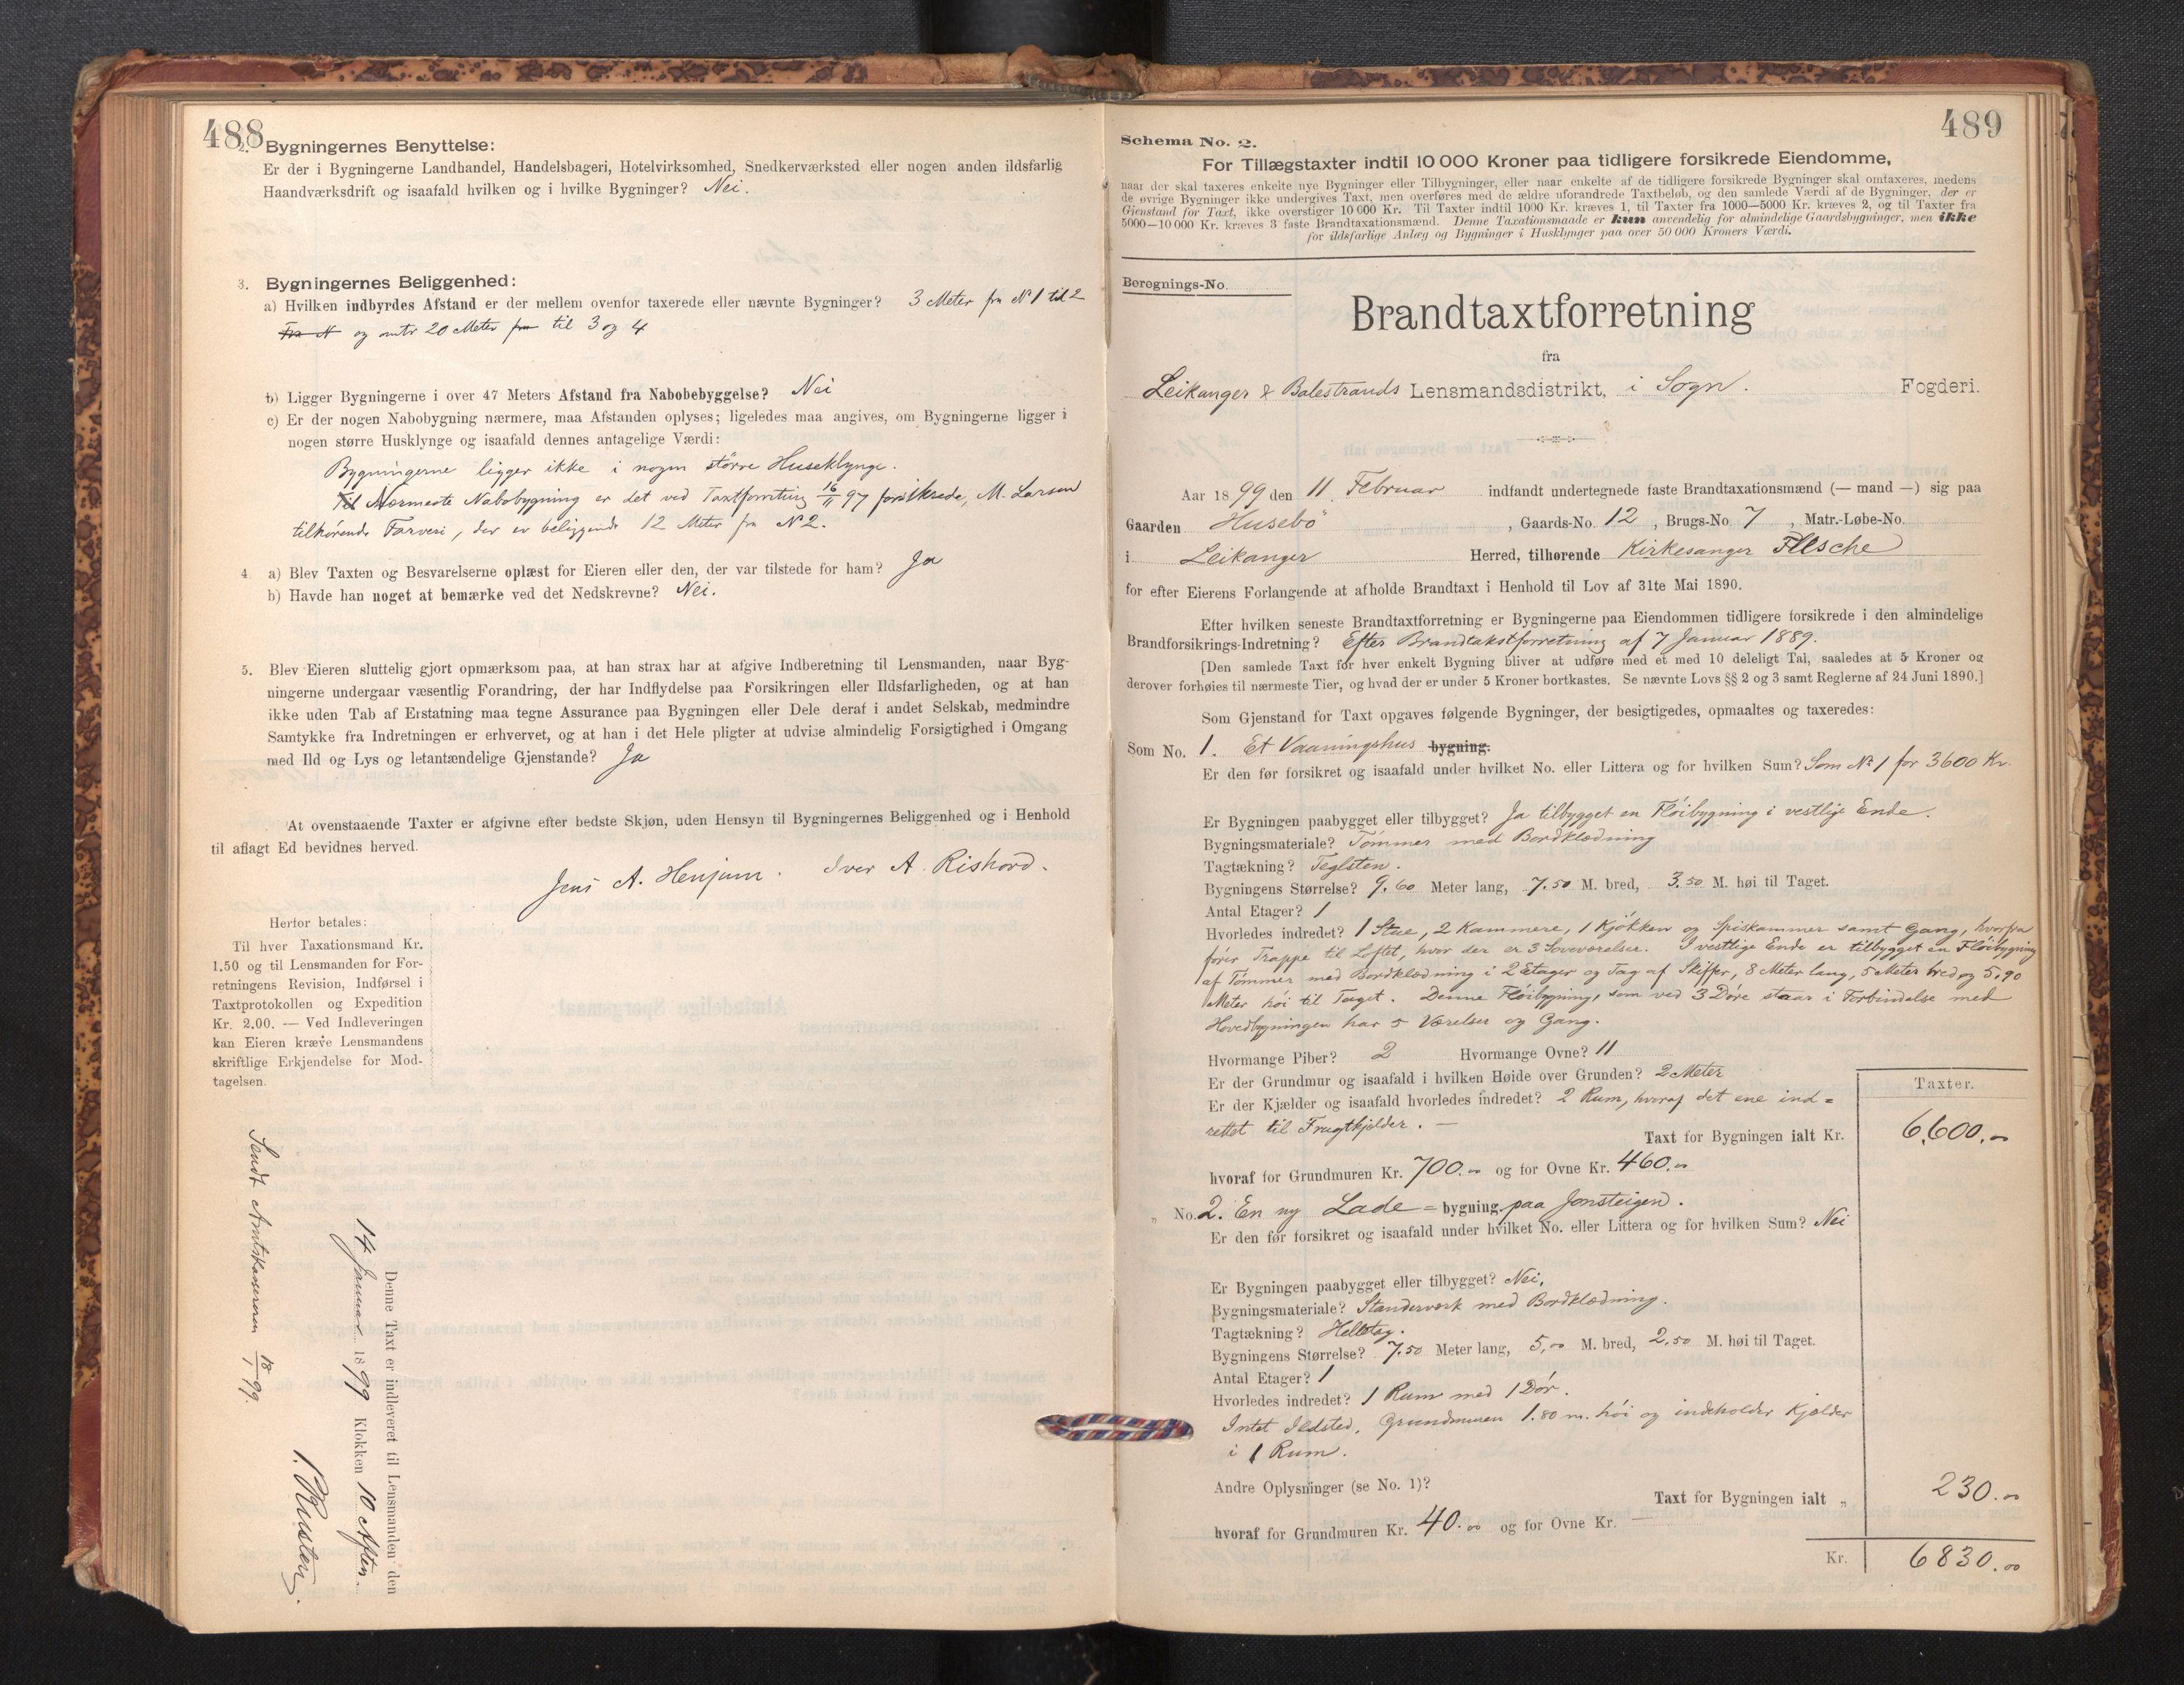 488
2. Bygningernes Benyttelse:
Er der i Bygningerne Landhandel, Handelsbageri, Hotelvirksomhed, Snedkerværksted eller nogen anden ildsfarlig
Haandværksdrift og isaafald hvilken og i hvilke Bygninger? Nei.
3. Bygningernes Beliggenhed:
a) Hvilken indbyrdes Afstand er der mellem ovenfor taxerede eller nævnte Bygninger? 3 Meter fra No 1 til 2
Fra N og omtr 20 Meter fra til 3 og 4
b) Ligger Bygningerne i over 47 Meters Afstand fra Nabobebyggelse? Nei
c) Er der nogen Nabobygning nærmere, maa Afstanden oplyses; ligeledes maa angives, om Bygningerne ligger i
nogen større Husklynge og isaafald dennes antagelige Værdi:
Bygningerne ligger ikke i nogen større Huseklynge.
Til Nærmeste Nabobygning er det ved Taxtforretning 16/11 97 forsikrede, M. Larsen
tilhørende Farveri, der er beliggende 12 Meter fra No 2.
4. a) Blev Taxten og Besvarelserne oplæst for Eieren eller den, der var tilstede for ham? Ja
b) Havde han noget at bemærke ved det Nedskrevne? Nei.
5. Blev Eieren sluttelig gjort opmærksom paa, at han strax har at afgive Indberetning til Lensmanden, naar Byg-
ningerne undergaar væsentlig Forandring, der har Indflydelse paa Forsikringen eller Ildsfarligheden, og at han
ikke uden Tab af Erstatning maa tegne Assurance paa Bygningen eller Dele deraf i andet Selskab, medmindre
Samtykke fra Indretningen er erhvervet, og at han i det Hele pligter at udvise almindelig Forsigtighed i Omgang
med Ild og Lys og letantændelige Gjenstande? Ja
At ovenstaaende Taxter er afgivne efter bedste Skjøn, uden Hensyn til Bygningernes Beliggenhed og i Henhold
til aflagt Ed bevidnes herved.
Jens A. Henjum. Iver A. Rishovd.
Herfor betales:
Til hver Taxationsmand Kr.
1.50 og til Lensmanden for For-
retningens Revision, Indførsel i
Taxtprotokollen og Expedition
Kr. 2.00. — Ved Indleveringen
kan Eieren kræve Lensmandens
skriftlige Erkjendelse for Mod-
tagelsen.
Denne Taxt er indleveret til Lensmanden den
14 Januar 1899 Klokken 10 Aften.
Sendt Amtskasseren 18/1 99.
489
Schema No. 2.
For Tillægstaxter indtil 10 000 Kroner paa tidligere forsikrede Eiendomme,
naar der skal taxeres enkelte nye Bygninger eller Tilbygninger, eller naar enkelte af de tidligere forsikrede Bygninger skal omtaxeres, medens
de øvrige Bygninger ikke undergives Taxt, men overføres med de ældre uforandrede Taxtbeløb, og den samlede Værdi af de Bygninger, der er
Gjenstand for Taxt, ikke overstiger 10 000 Kr. Til Taxter indtil 1000 Kr. kræves 1, til Taxter fra 1000—5000 Kr. kræves 2, og til Taxter fra
5000—10 000 Kr. kræves 3 faste Brandtaxationsmænd. Denne Taxationsmaade er kun anvendelig for almindelige Gaardsbygninger, men ikke
for ildsfarlige Anlæg og Bygninger i Husklynger paa over 50 000 Kroners Værdi.
Beregnings-No.
Brandtaxtforretning
fra
Leikanger & Balestrands Lensmandsdistrikt, i Sogn. Fogderi.
Aar 1899 den 11 Februar indfandt undertegnede faste Brandtaxationsmænd (— mand —) sig paa
Gaarden Husebö, Gaards-No. 12, Brugs-No. 7, Matr.-Løbe-No.
i Leikanger Herred, tilhørende Kirkesanger Flesche
for efter Eierens Forlangende at afholde Brandtaxt i Henhold til Lov af 31te Mai 1890.
Efter hvilken seneste Brandtaxtforretning er Bygningerne paa Eiendommen tidligere forsikrede i den almindelige
Brandforsikrings-Indretning? Efter Brandtakstforretning af 7 Januar 1889.
[Den samlede Taxt for hver enkelt Bygning bliver at udføre med et med 10 deleligt Tal, saaledes at 5 Kroner og
derover forhøies til nærmeste Tier, og hvad der er under 5 Kroner bortkastes. Se nævnte Lovs §§ 2 og 3 samt Reglerne af 24 Juni 1890.]
Som Gjenstand for Taxt opgaves følgende Bygninger, der besigtigedes, opmaaltes og taxeredes:
Som No. 1. Et Vaaningshus bygning.
Er den før forsikret og isaafald under hvilket No. eller Littera og for hvilken Sum? Som No 1 for 3600 Kr.
Er Bygningen paabygget eller tilbygget? Ja tilbygget en Flöibygning i vestlige Ende.
Bygningsmateriale? Tömmer med Bordklædning
Tagtækning? Teglsten.
Bygningens Størrelse? 9.60 Meter lang, 7.50 M. bred, 3.50 M. høi til Taget.
Antal Etager? 1
Hvorledes indredet? 1 Stue, 2 Kammere, 1 Kjökken og Spiskammer samt Gang, hvorfra
förer Trappe til Loftet, hvor der er 3 Soveværelser. I vestlige Ende er tilbygget en Flöibygning
af Tömmer med Bordklædning i 2 Etager og Tag af Skiffer, 8 Meter lang, 5 Meter bred og 5.90
Meter höi til Taget. Denne Flöibygning, som ved 3 Döre staar i Forbindelse med
Hovedbygningen har 5 Værelser og Gang.
Hvormange Piber? 2 Hvormange Ovne? 11
Er der Grundmur og isaafald i hvilken Høide over Grunden? 2 Meter
Er der Kjælder og isaafald hvorledes indredet? 2 Rum, hvoraf det ene ind=
rettet til Frugtkjelder. —
Taxter.
Taxt for Bygningen ialt Kr. 6,600.00
hvoraf for Grundmuren Kr. 700.00 og for Ovne Kr. 460.00
„ No. 2. En ny Lade= bygning paa Jonsteigen.
Er den før forsikret og isaafald under hvilket No. eller Littera og for hvilken Sum? Nei
Er Bygningen paabygget eller tilbygget? Nei,
Bygningsmateriale? Standerverk med Bordklædning.
Tagtækning? Helletag.
Bygningens Størrelse? 7.50 Meter lang, 5,00 M. bred, 2.50 M. høi til Taget.
Antal Etager? 1
Hvorledes indredet? 1 Rum med 1 Dör.
Intet Ildsted, Grundmuren 1.80 m. höi og indeholder Kjelder
i 1 Rum.
Andre Oplysninger (se No. 1)?
Taxt for Bygningen ialt „ 230.00
hvoraf for Grundmuren Kr. 40.00 og for Ovne Kr. —
Kr. 6830.00